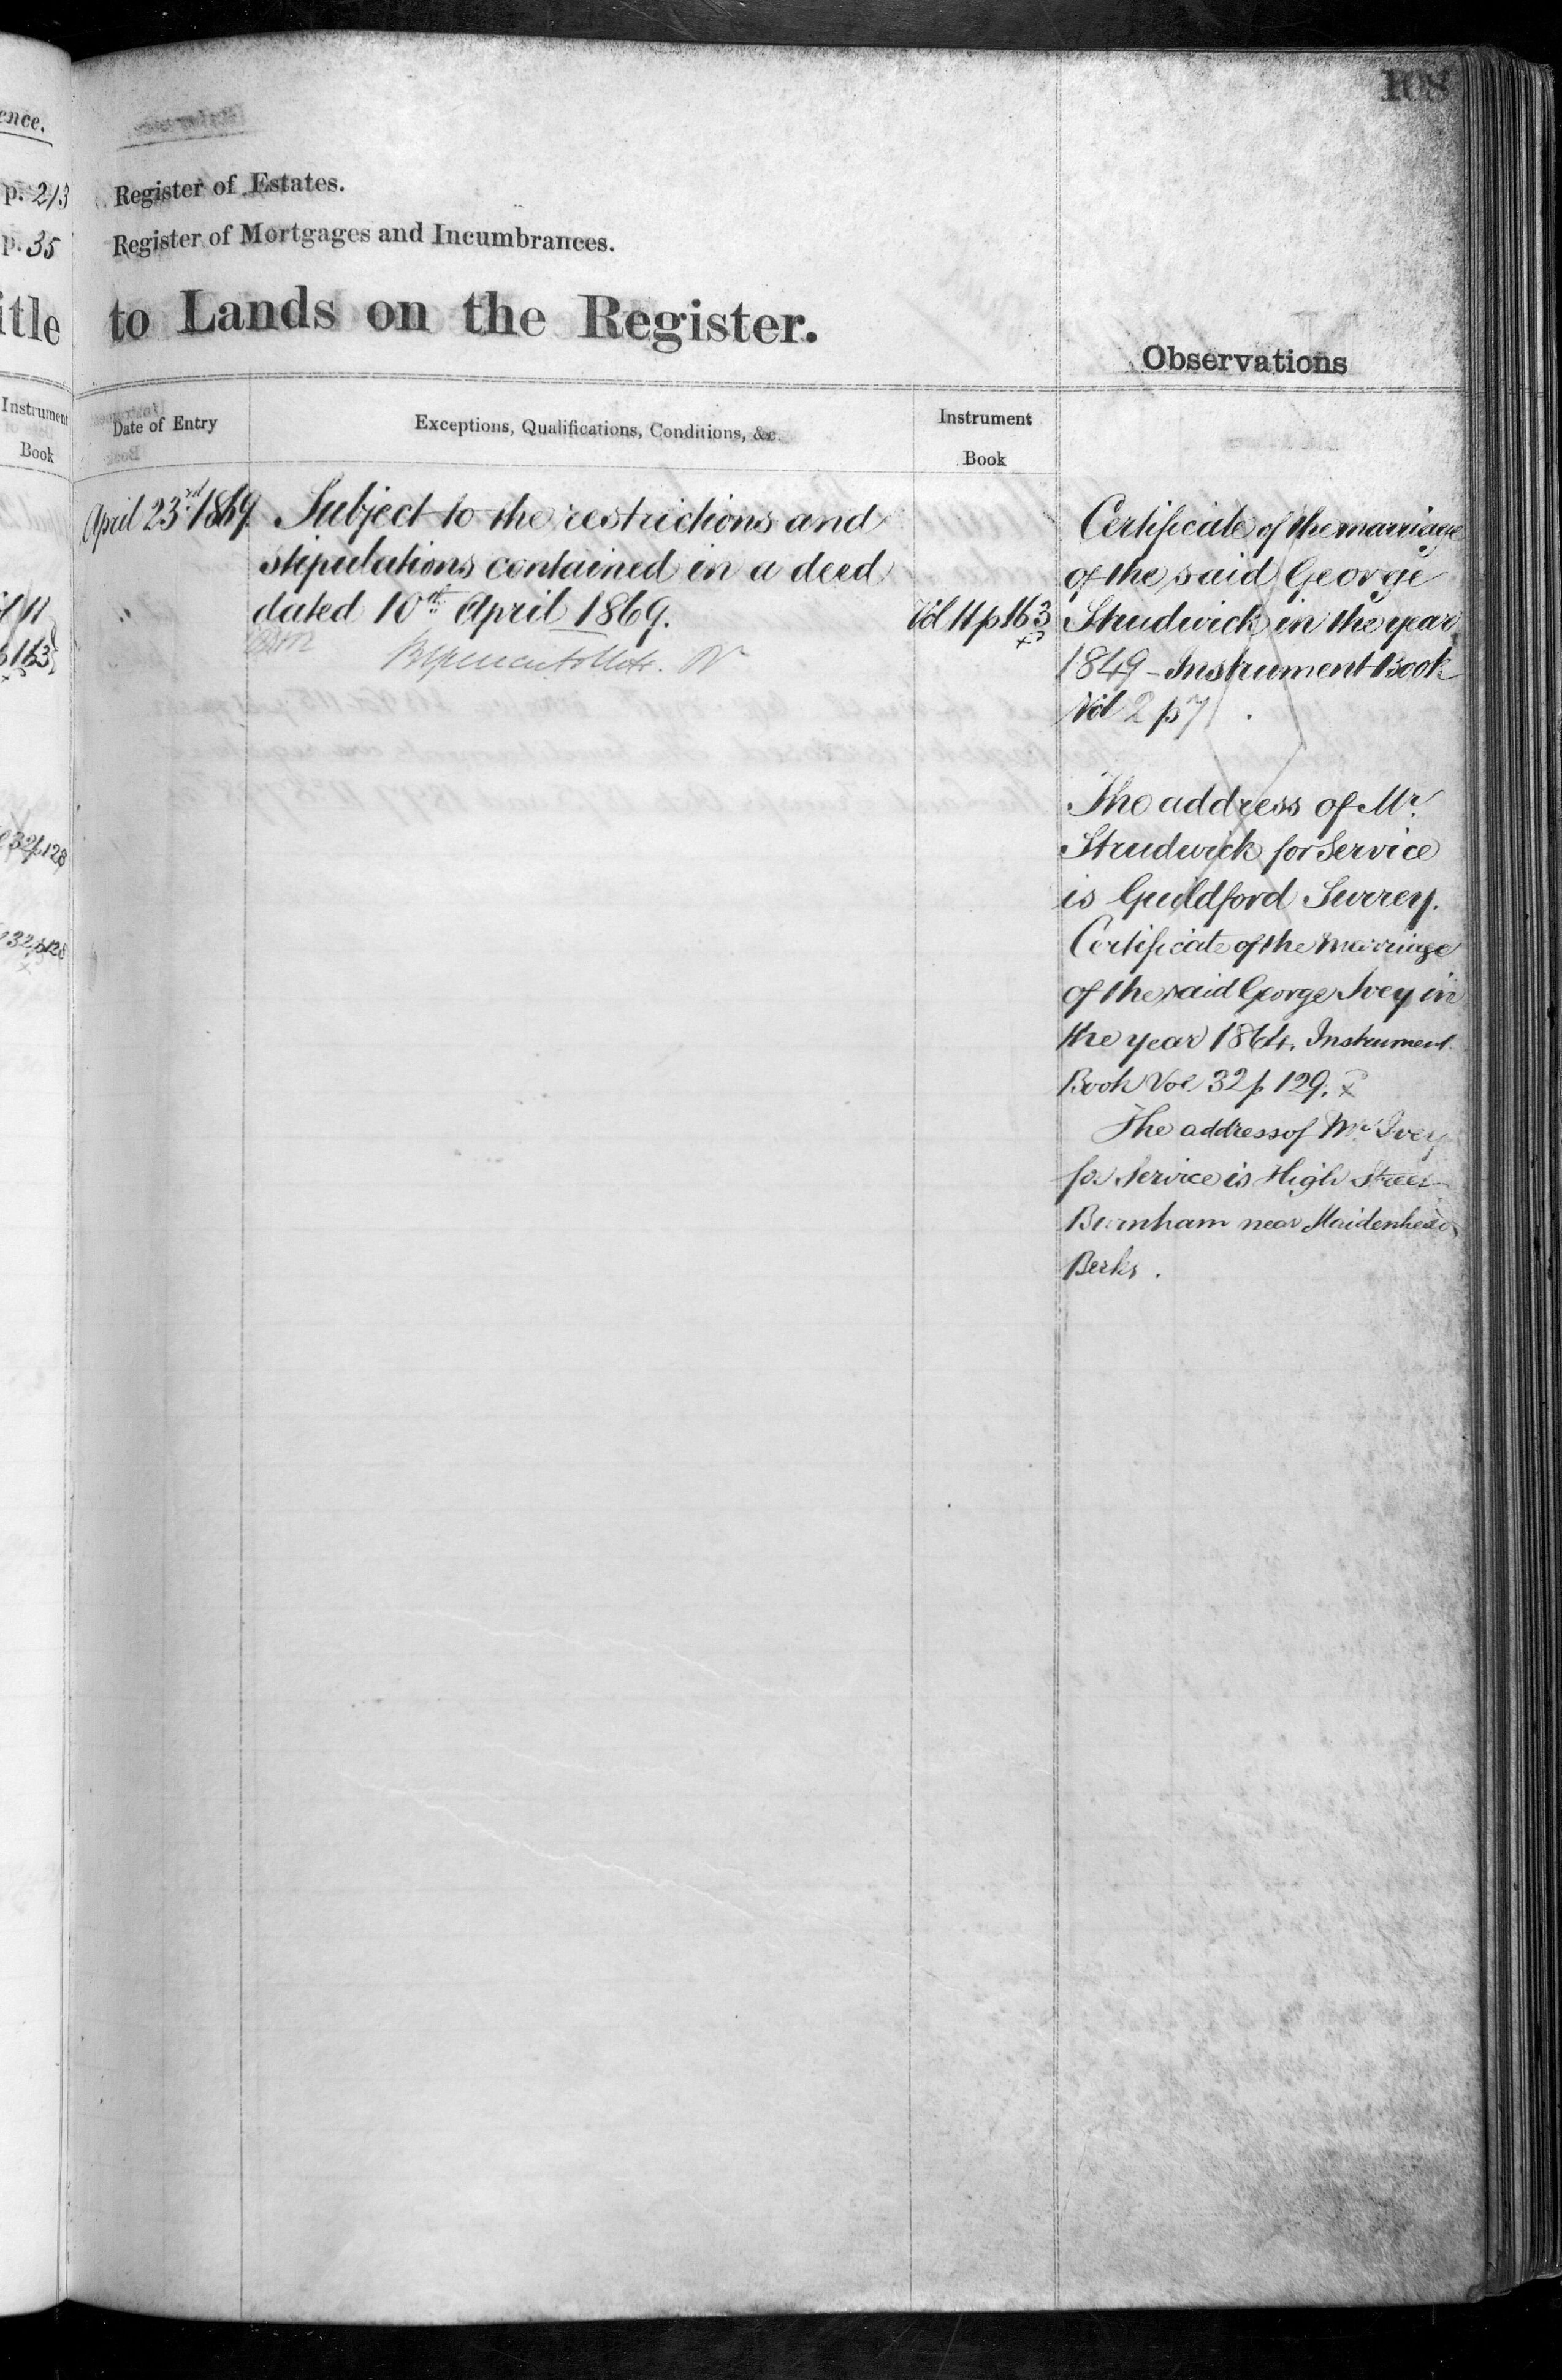 ence.
p. 213
p. 35
itle
Instrument
Book
p 163
32 p 128
32 p 128
108
Register of Estates.
Register of Mortgages and Incumbrances.
to Lands on the Register.
Observations
Date of Entry
Exceptions, Qualifications, Conditions, &c.
Instrument
Book
April 23rd 1869
Subject to the restrictions and
stipulations contained in a deed
dated 10th April 1869.
Vol 11 p 163
Certificate of the marriage
of the said George
Strudwick in the year
1849 - Instrument Book
Vol 2 p 7
The address of Mr
Strudwick for Service
is Guildford Surrey.
Certificate of the Marriage
of the said George Ivey in
the year 1864. Instrument
Book Vol 32 p 129.
The address of Mr Ivey
for Service is High Street
Burnham near Maidenhead
Berks.